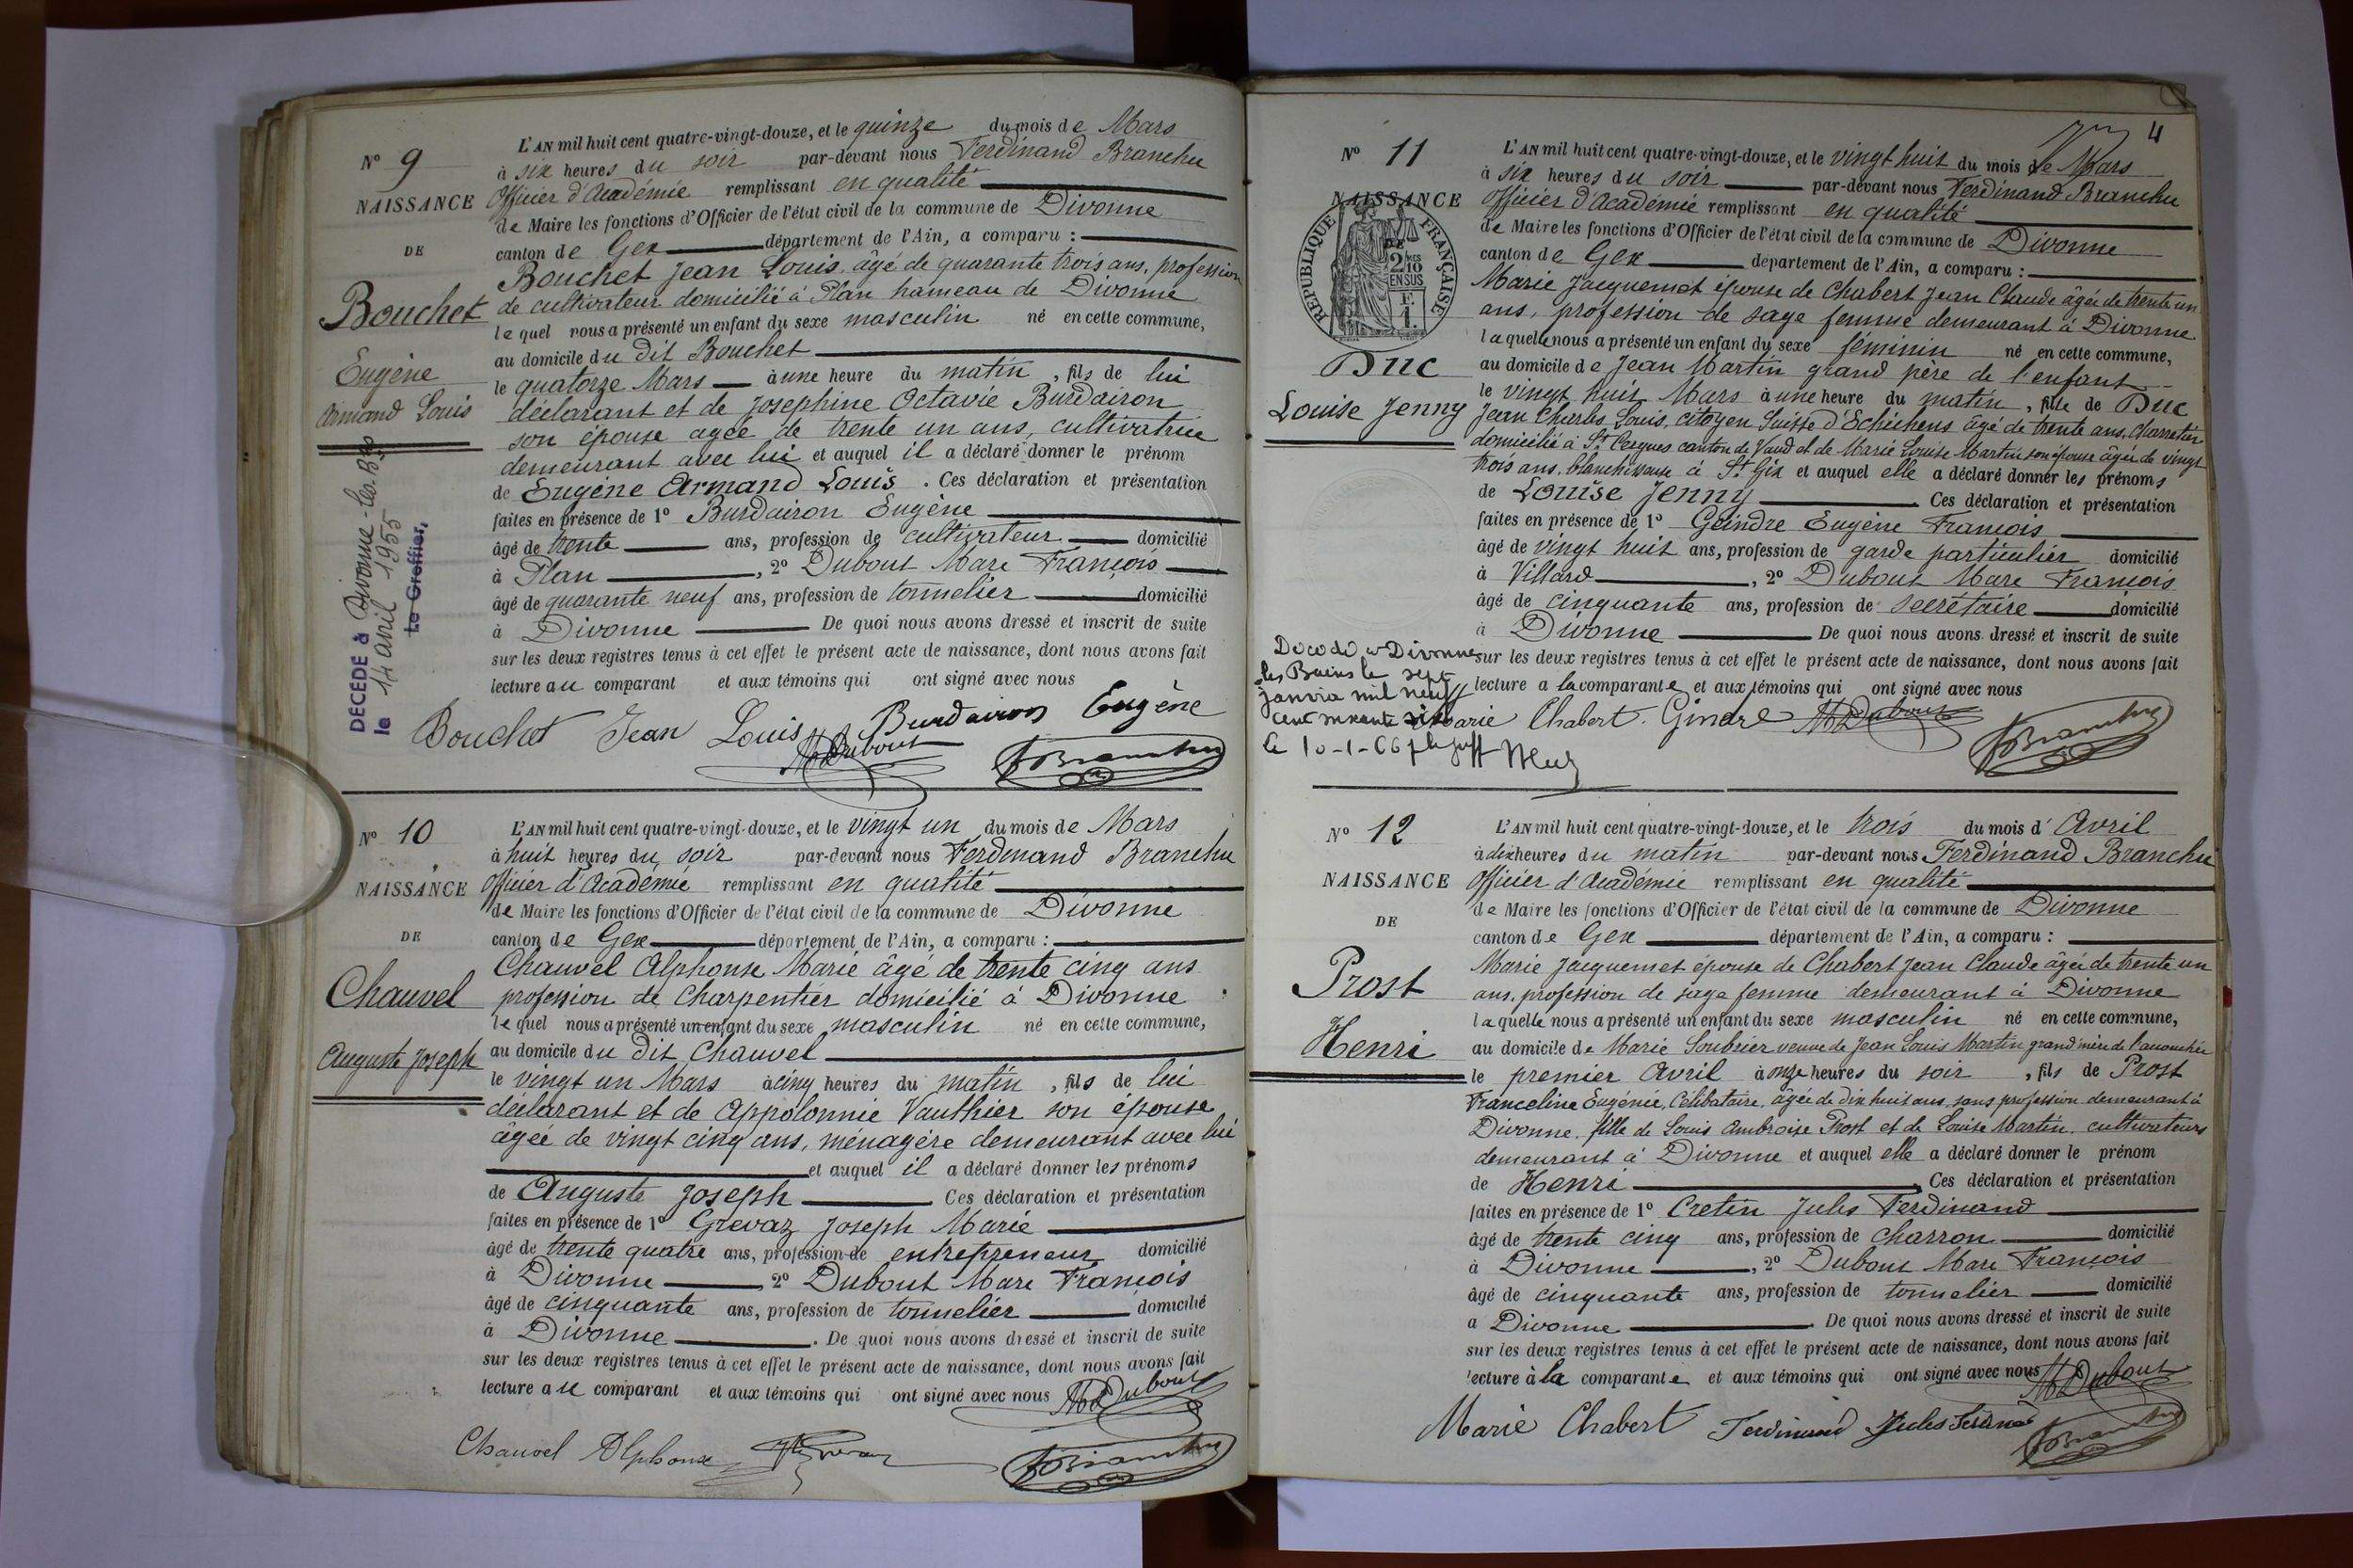 Nº 9
NAISSANCE
DE
Bouchet
Eugène
Armand Louis
DÉCÉDÉ à Divonne-les-Bs
le 14 avril 1955
Le Greffier,
L'AN mil huit cent quatre-vingt-douze, et le quinze du mois de Mars
à six heures du soir par-devant nous Ferdinand Branchu
Officier d'Académie remplissant en qualité
de Maire les fonctions d'Officier de l'état civil de la commune de Divonne
canton de Gex département de l'Ain, a comparu :
Bouchet Jean Louis, âgé de quarante trois ans, profession
de cultivateur domicilié à Plan hameau de Divonne
lequel nous a présenté un enfant du sexe masculin né en cette commune,
au domicile du dit Bouchet
le quatorze Mars à une heure du matin, fils de lui
déclarant et de Josephine Octavie Burdairon
son épouse agée de trente un ans, cultivatrice
demeurant avec lui et auquel il a déclaré donner le prénom
de Eugène Armand Louis. Ces déclaration et présentation
faites en présence de 1º Burdairon Eugène
âgé de trente ans, profession de cultivateur domicilié
à Plan, 2º Dubout Marc François
âgé de quarante neuf ans, profession de tonnelier domicilié
à Divonne De quoi nous avons dressé et inscrit de suite
sur les deux registres tenus à cet effet le présent acte de naissance, dont nous avons fait
lecture au comparant et aux témoins qui ont signé avec nous
Bouchet Jean Louis Burdairon Eugène
MDubout FBranchu
Nº 10
NAISSANCE
DE
Chauvel
Auguste Joseph
L'AN mil huit cent quatre-vingt-douze, et le vingt un du mois de Mars
à huit heures du soir par-devant nous Ferdinand Branchu
Officier d'Académie remplissant en qualité
de Maire les fonctions d'Officier de l'état civil de la commune de Divonne
canton de Gex département de l'Ain, a comparu :
Chauvel Alphonse Marie âgé de trente cinq ans
profession de Charpentier domicilié à Divonne
lequel nous a présenté un enfant du sexe masculin né en cette commune,
au domicile du dit Chauvel
le vingt un Mars à cinq heures du matin, fils de lui
déclarant et de Appolonnie Vauthier son épouse
âgée de vingt cinq ans, ménagère demeurant avec lui
et auquel il a déclaré donner les prénoms
de Auguste Joseph Ces déclaration et présentation
faites en présence de 1º Grevaz Joseph Marie
âgé de trente quatre ans, profession de entrepreneur domicilié
à Divonne 2º Dubout Marc François
âgé de cinquante ans, profession de tonnelier domicilié
à Divonne. De quoi nous avons dressé et inscrit de suite
sur les deux registres tenus à cet effet le présent acte de naissance, dont nous avons fait
lecture au comparant et aux témoins qui ont signé avec nous MDubout
Chauvel Alphonse FBranchu
4
Nº 11
NAISSANCE
DE
RÉPUBLIQUE FRANÇAISE
2/10 EN SUS
Duc
Louise Jenny
L'AN mil huit cent quatre-vingt-douze, et le vingt huit du mois de Mars
à six heures du soir par-devant nous Ferdinand Branchu
Officier d'Académie remplissant en qualité
de Maire les fonctions d'Officier de l'état civil de la commune de Divonne
canton de Gex département de l'Ain, a comparu :
Marie Jacquemet épouse de Chabert Jean Claude âgée de trente un
ans, profession de sage femme demeurant à Divonne
laquelle nous a présenté un enfant du sexe féminin né en cette commune,
au domicile de Jean Martin grand père de l'enfant
le vingt huit Mars à une heure du matin, fille de Duc
Jean Charles Louis, citoyen Suisse d'Echichens âgé de trente ans, Charretier
domicilié à St Cergues canton de Vaud et de Marie Louise Martin son épouse âgée de vingt
trois ans, blanchisseuse à St Gix et auquel elle a déclaré donner les prénoms
de Louise Jenny Ces déclaration et présentation
faites en présence de 1º Geindre Eugène François
âgé de vingt huit ans, profession de garde particulier domicilié
à Villard, 2º Dubout Marc François
âgé de cinquante ans, profession de secrétaire domicilié
à Divonne De quoi nous avons dressé et inscrit de suite
sur les deux registres tenus à cet effet le présent acte de naissance, dont nous avons fait
lecture a la comparante et aux témoins qui ont signé avec nous
Marie Chabert. Gindre MDubout
FBranchu
Décédé à Divonne
les Bains le sept
janvier mil neuf
cent soixante six
le 10-1-66
Nº 12
NAISSANCE
DE
Prost
Henri
L'AN mil huit cent quatre-vingt-douze, et le trois du mois d'Avril
à dix heures du matin par-devant nous Ferdinand Branchu
Officier d'Académie remplissant en qualité
de Maire les fonctions d'Officier de l'état civil de la commune de Divonne
canton de Gex département de l'Ain, a comparu :
Marie Jacquemet épouse de Chabert Jean Claude âgée de trente un
ans, profession de sage femme demeurant à Divonne
laquelle nous a présenté un enfant du sexe masculin né en cette commune,
au domicile de Marie Soubrier veuve de Jean Louis Martin grand'mère de l'accouchée
le premier Avril à onze heures du soir, fils de Prost
Franceline Eugénie, Célibataire, âgée de dix huit ans, sans profession demeurant à
Divonne, fille de Louis Ambroise Prost et de Louise Martin, cultivateurs
demeurant à Divonne et auquel elle a déclaré donner le prénom
de Henri. Ces déclaration et présentation
faites en présence de 1º Cretin Jules Ferdinand
âgé de trente cinq ans, profession de Charron domicilié
à Divonne, 2º Dubout Marc François
âgé de cinquante ans, profession de tonnelier domicilié
a Divonne. De quoi nous avons dressé et inscrit de suite
sur les deux registres tenus à cet effet le présent acte de naissance, dont nous avons fait
lecture à la comparante et aux témoins qui ont signé avec nous MDubout
Marie Chabert Ferdinand Jules
FBranchu